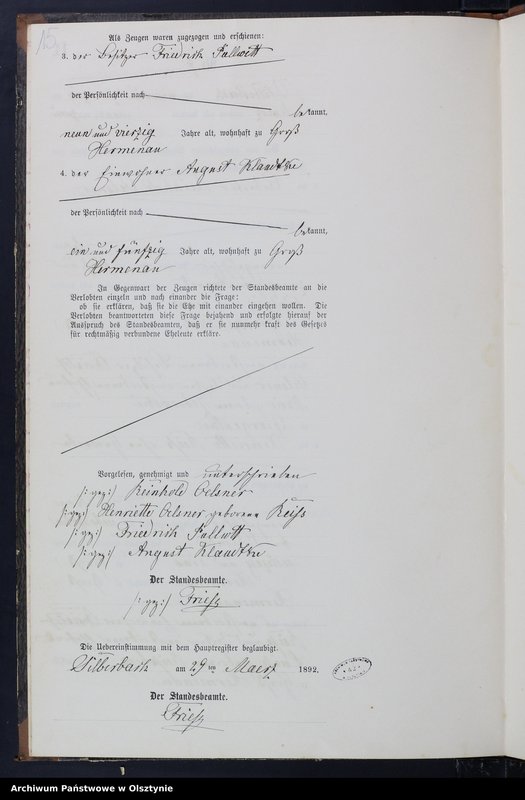 15
Als Zeugen waren zugezogen und erschienen:
3. der Besitzer Friedrich Fallwitt
der Persönlichkeit nach
bekannt,
neun und vierzig Jahre alt, wohnhaft zu Groß
Hermenau
4. der Einwohner August Klaudtke
der Persönlichkeit nach
bekannt,
ein und fünfzig Jahre alt, wohnhaft zu Groß
Hermenau
In Gegenwart der Zeugen richtete der Standesbeamte an die
Verlobten einzeln und nach einander die Frage:
ob sie erklären, daß sie die Ehe mit einander eingehen wollen. Die
Verlobten beantworteten diese Frage bejahend und erfolgte hierauf der
Ausspruch des Standesbeamten, daß er sie nunmehr kraft des Gesetzes
für rechtmäßig verbundene Eheleute erkläre.
Vorgelesen, genehmigt und unterschrieben
/: gez :/ Reinhold Oelsner
/: gez :/ Henriette Oelsner geborene Reiß
/: gez :/ Friedrich Fallwitt
/: gez :/ August Klaudtke
Der Standesbeamte.
/: gez :/ Friesz
Die Uebereinstimmung mit dem Hauptregister beglaubigt.
Silberbach am 29 ten Maerz 1892.
Der Standesbeamte.
Friesz
Archiwum Państwowe w Olsztynie